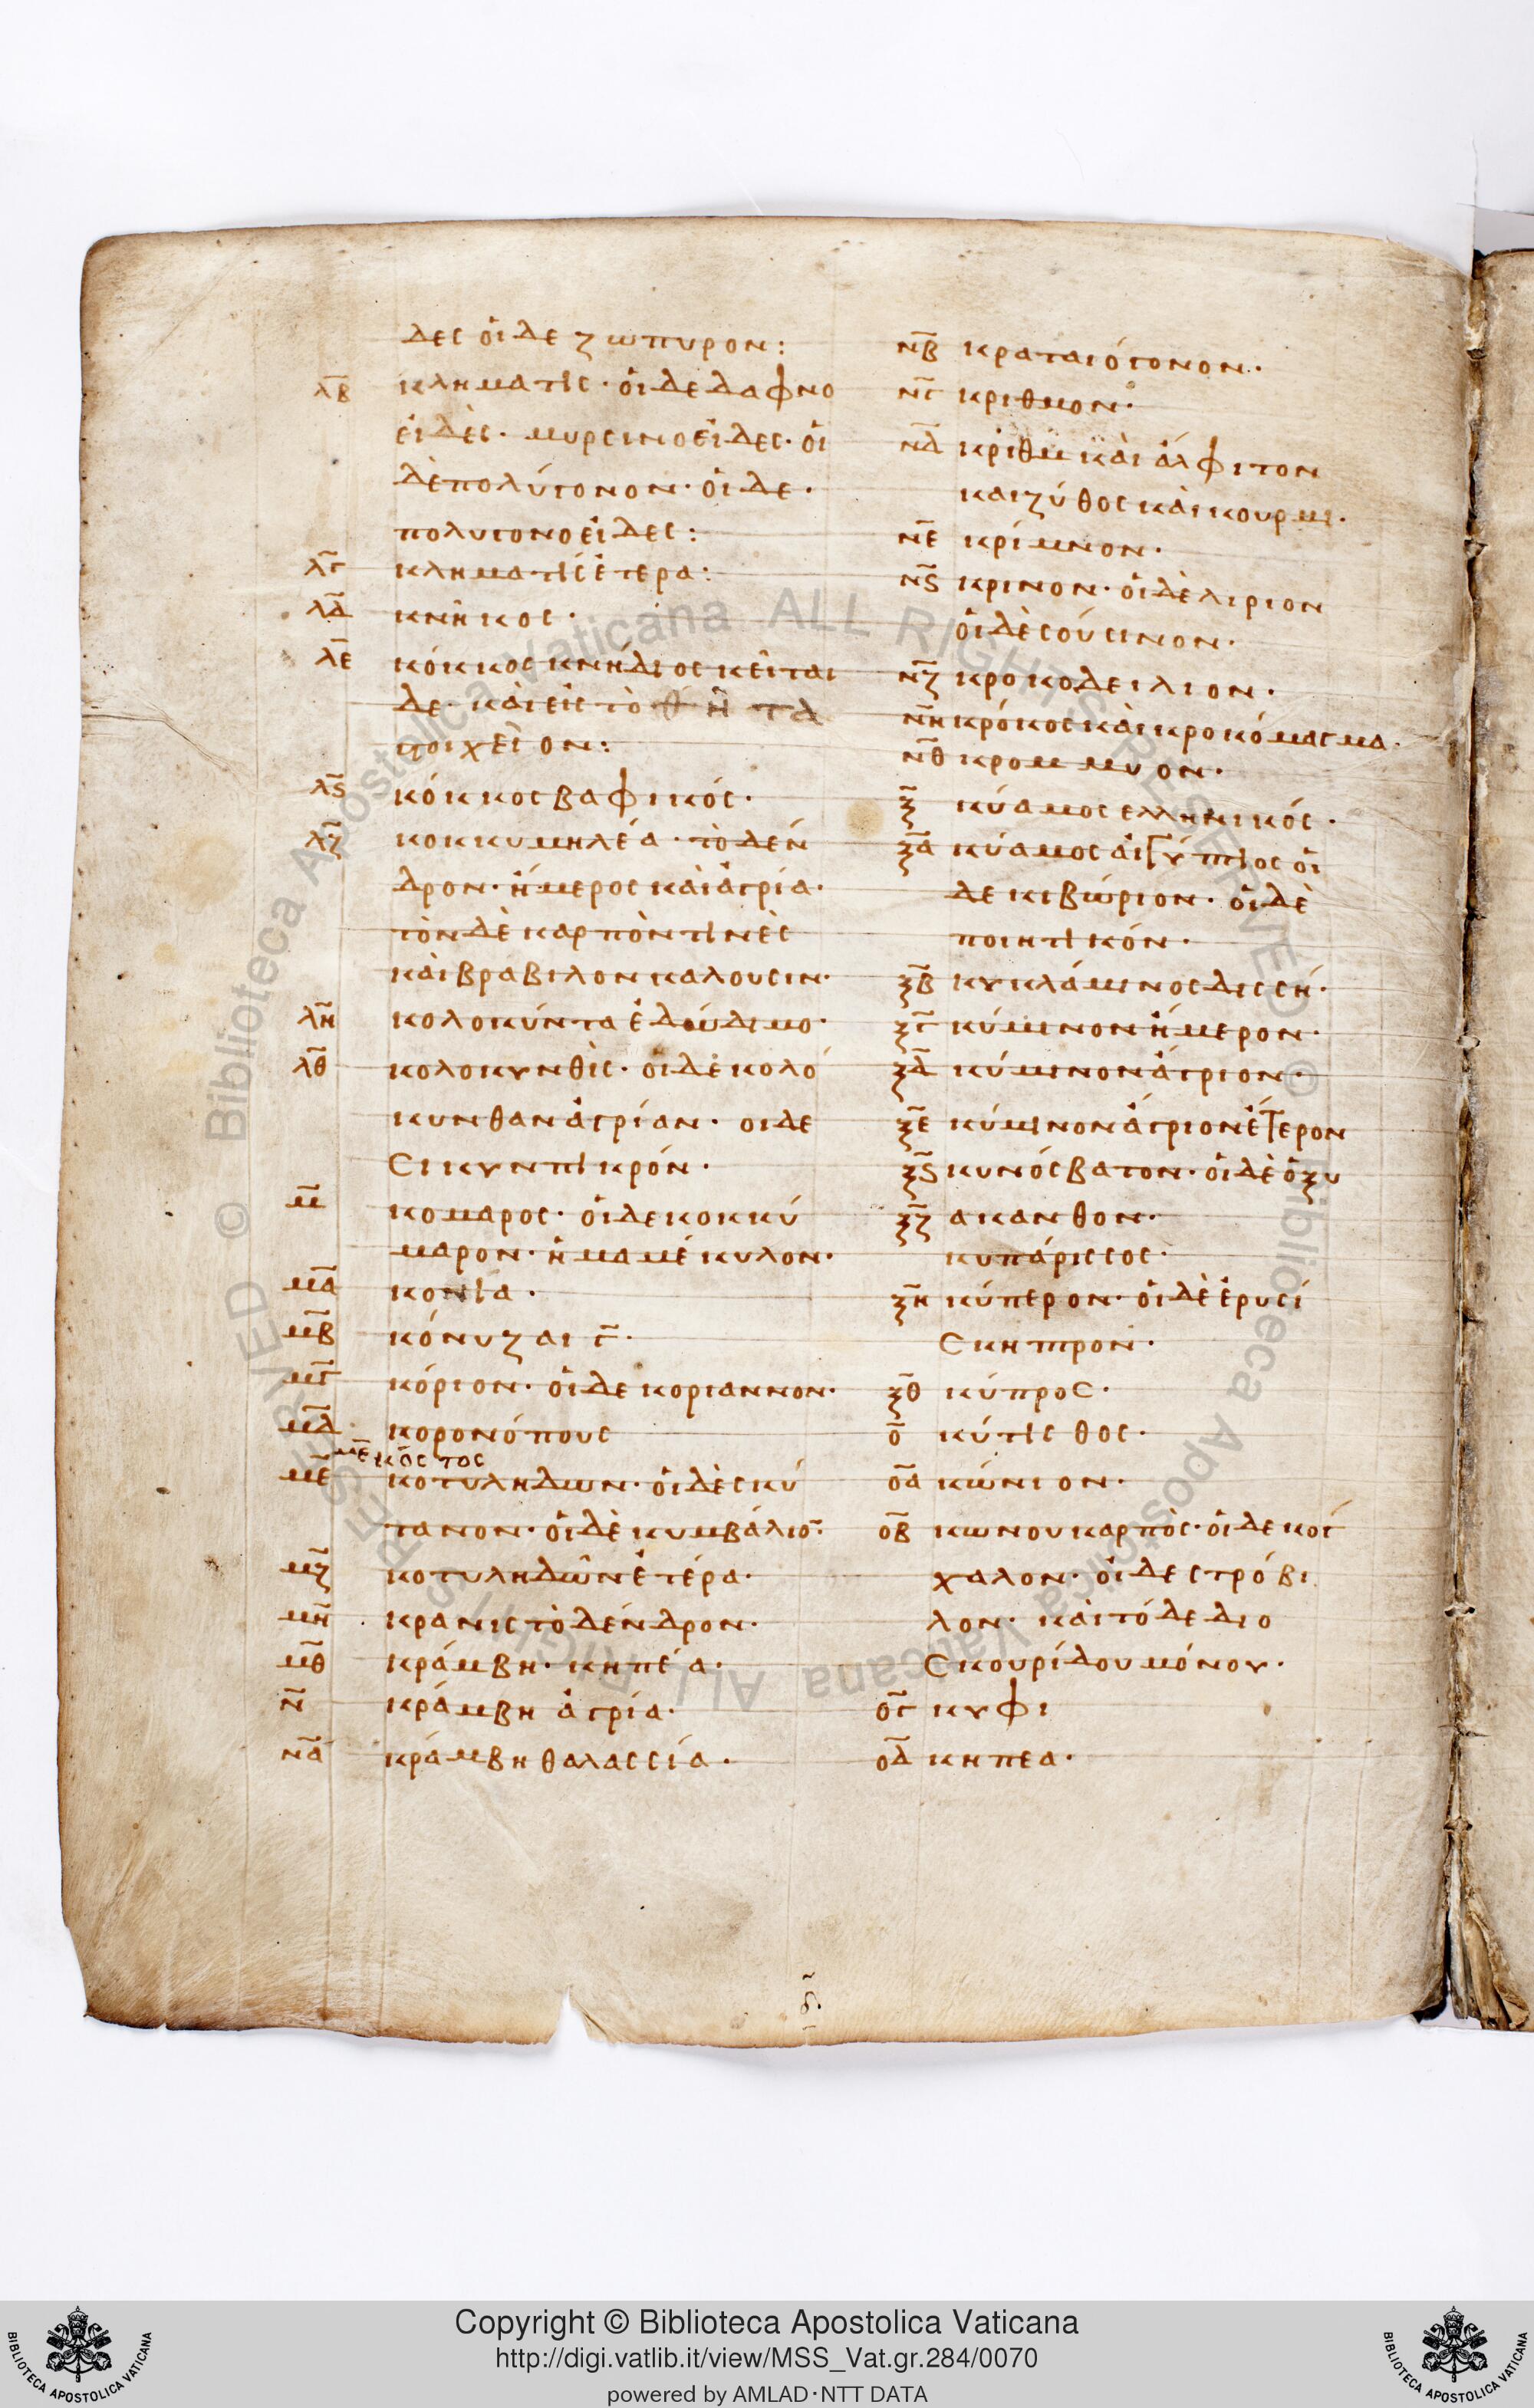 δες οἱ δε ζωπυρον:
λβ κληματὶς· οἱ δε δαφνο
ειδὲς· μυρσινοειδες· οἱ
δὲ πολύγονον· οἱ δε·
πολυγονοειδες:
λγ κληματὶς ἑτερα:
λδ κνῆκος·
λε κόκκος κνήδιος κεῖται
δε· καὶ εἰς τὸ θῆτα
στοιχεῖον:
λς κόκκος βαφικός·
λζ κοκκυμηλέα· τὸ δέν
δρον· ἥμερος καὶ ἀγρία·
τὸν δὲ καρπὸν τινὲς
καὶ βραβιλον καλουσιν·
λη κολοκύντα ἐδώδιμο·
λθ κολοκυνθὶς· οἱ δὲ κολό
κυνθαν ἀγρίαν· οι δε
σικυν πικρόν·
μ κομαρος· οἱ δε κοκκύ
μαρον· ἢ μαμέκυλον·
μα κονία·
μβ κόνυζαι γ·
μγ κόριον· οἱ δε κοριαννον·
μδ κορονόπους
με κόστος
με κοτυληδων· οἱ δὲ σκύ
τανον· οἱ δὲ κυμβάλιο:
μζ κοτυληδῶν ἑτέρα·
μη κρανις τὸ δένδρον·
μθ κράμβη· κηπέα·
ν κράμβη ἀγρία·
να κράμβη θαλασσία·
νβ κραταιόγονον·
νγ κριθμον·
νδ κριθὴ καὶ άλφιτον
και ζύθος καὶ κουρμι·
νε κρίμνον·
νς κρινον· οἱ δὲ λιριον
οἱ δὲ σούσινον·
νζ κροκοδειλιον·
νη κρόκος καὶ κροκόμαγμα·
νθ κρομμυον·
ξ κύαμος ελληνικός·
ξα κύαμος αἰγύπτιος οἱ
δε κιβώριον· οἱ δὲ
ποιητικόν·
ξβ κυκλάμινος δισσή·
ξγ κύμινον ἥμερον·
ξδ κύμινον ἄγριον·
ξε κύμινον ἄγριον ἕτερον
ξς κυνόσβατον· οἱ δὲ ὀξυ
ξζ ακανθον·
κυπάρισσος·
ξη κύπερον· οἱ δὲ ἐρυσί
σκηπτρον·
ξθ κύπρος·
ο κύτισθος·
οα κώνιον·
οβ κωνου καρπὸς· οἱ δε κογ
χαλον· οἱ δε στρόβι
λον· καὶ τό δε διο
σκουρίδου μόνου·
ογ κυφι
οδ κηπεα·
δ·
Copyright © Biblioteca Apostolica Vaticana
http://digi.vatlib.it/view/MSS_Vat.gr.284/0070
powered by AMLAD·NTT DATA
BIBLIOTECA APOSTOLICA VATICANA
BIBLIOTECA APOSTOLICA VATICANA
© Biblioteca Apostolica Vaticana ALL RIGHTS RESERVED
© Biblioteca Apostolica Vaticana ALL RIGHTS RESERVED